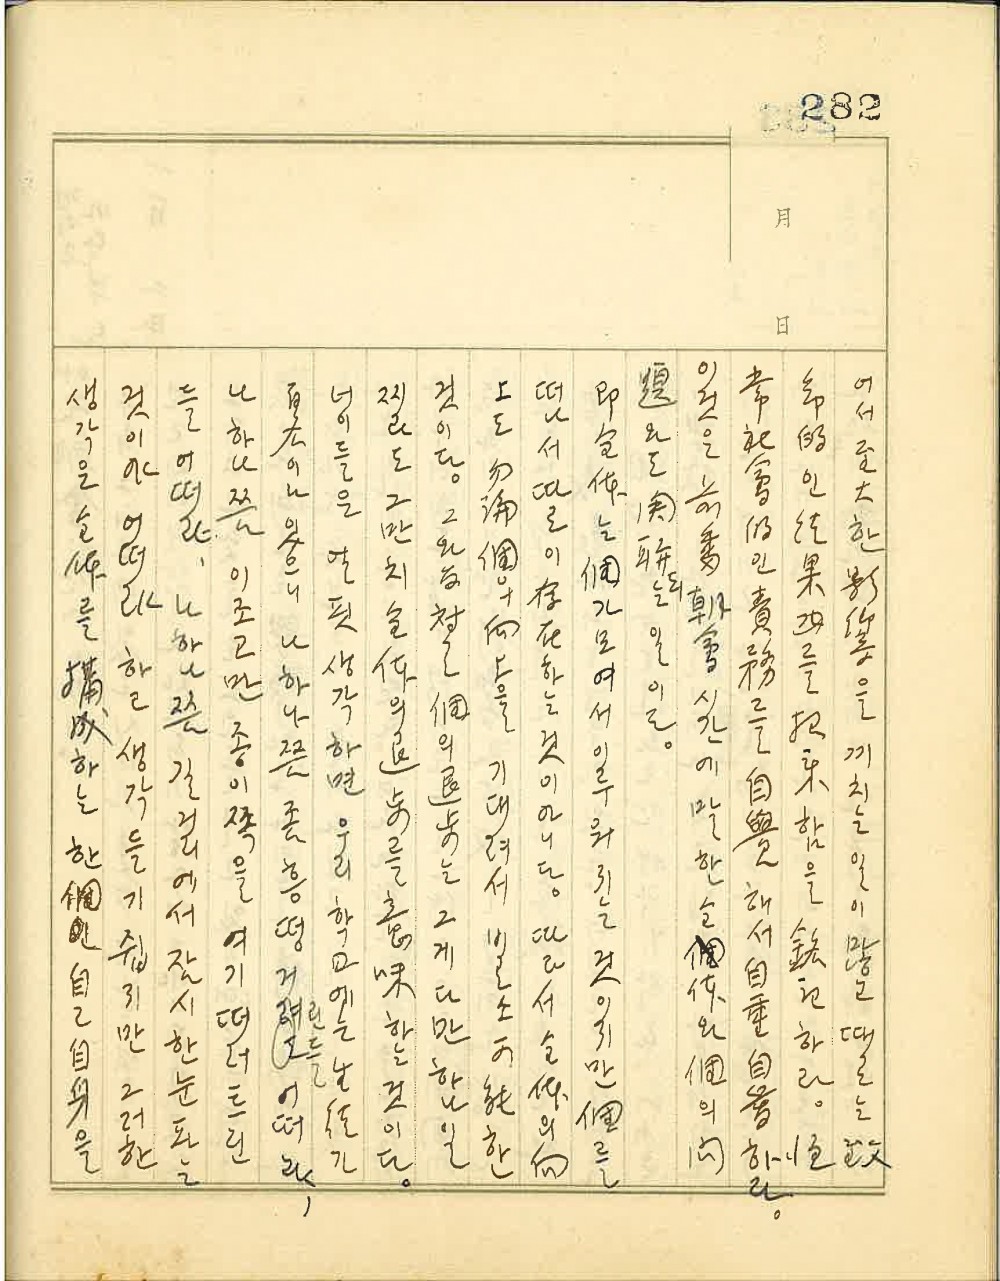 282
月
日
어서 至大한 影響을 끼치는 일이 많고 때로는 致
命的인 結果까지를 招来함을 銘記하라. 恒
常 社會的인 責務를 自覺해서 自重自愛하라.
이것은 前番 朝會시간에 말한 全体와 個의 問
題와도 関聯되는 일이다.
即 全体는 個가 모여서 이루워지는 것이지만 個를
떠나서 따로이 存在하는 것이 아니다. 따라서 全体의 向
上도 勿論 個의 向上을 기대려서 비로소 可能한
것이다. 그와 反対로 個의 退步는 그게 다만 하나일
찌라도 그만치 全体의 退步를 意味하는 것이다.
너이들은 얼핏 생각하면 우리 학교에는 生徒가
百名이나 있으니 나 하나쯤 좀 흥떵거린들 어떠랴,
나 하나쯤 이 조고만 종이쪽을 여기 떠러트린
들 어떠랴, 나 하나쯤 길거리에서 잠시 한눈 파는
것이야 어떠랴 하고 생각들 기 쉽지만 그러한
생각은 全体를 構成하는 한 個인 自己自身을